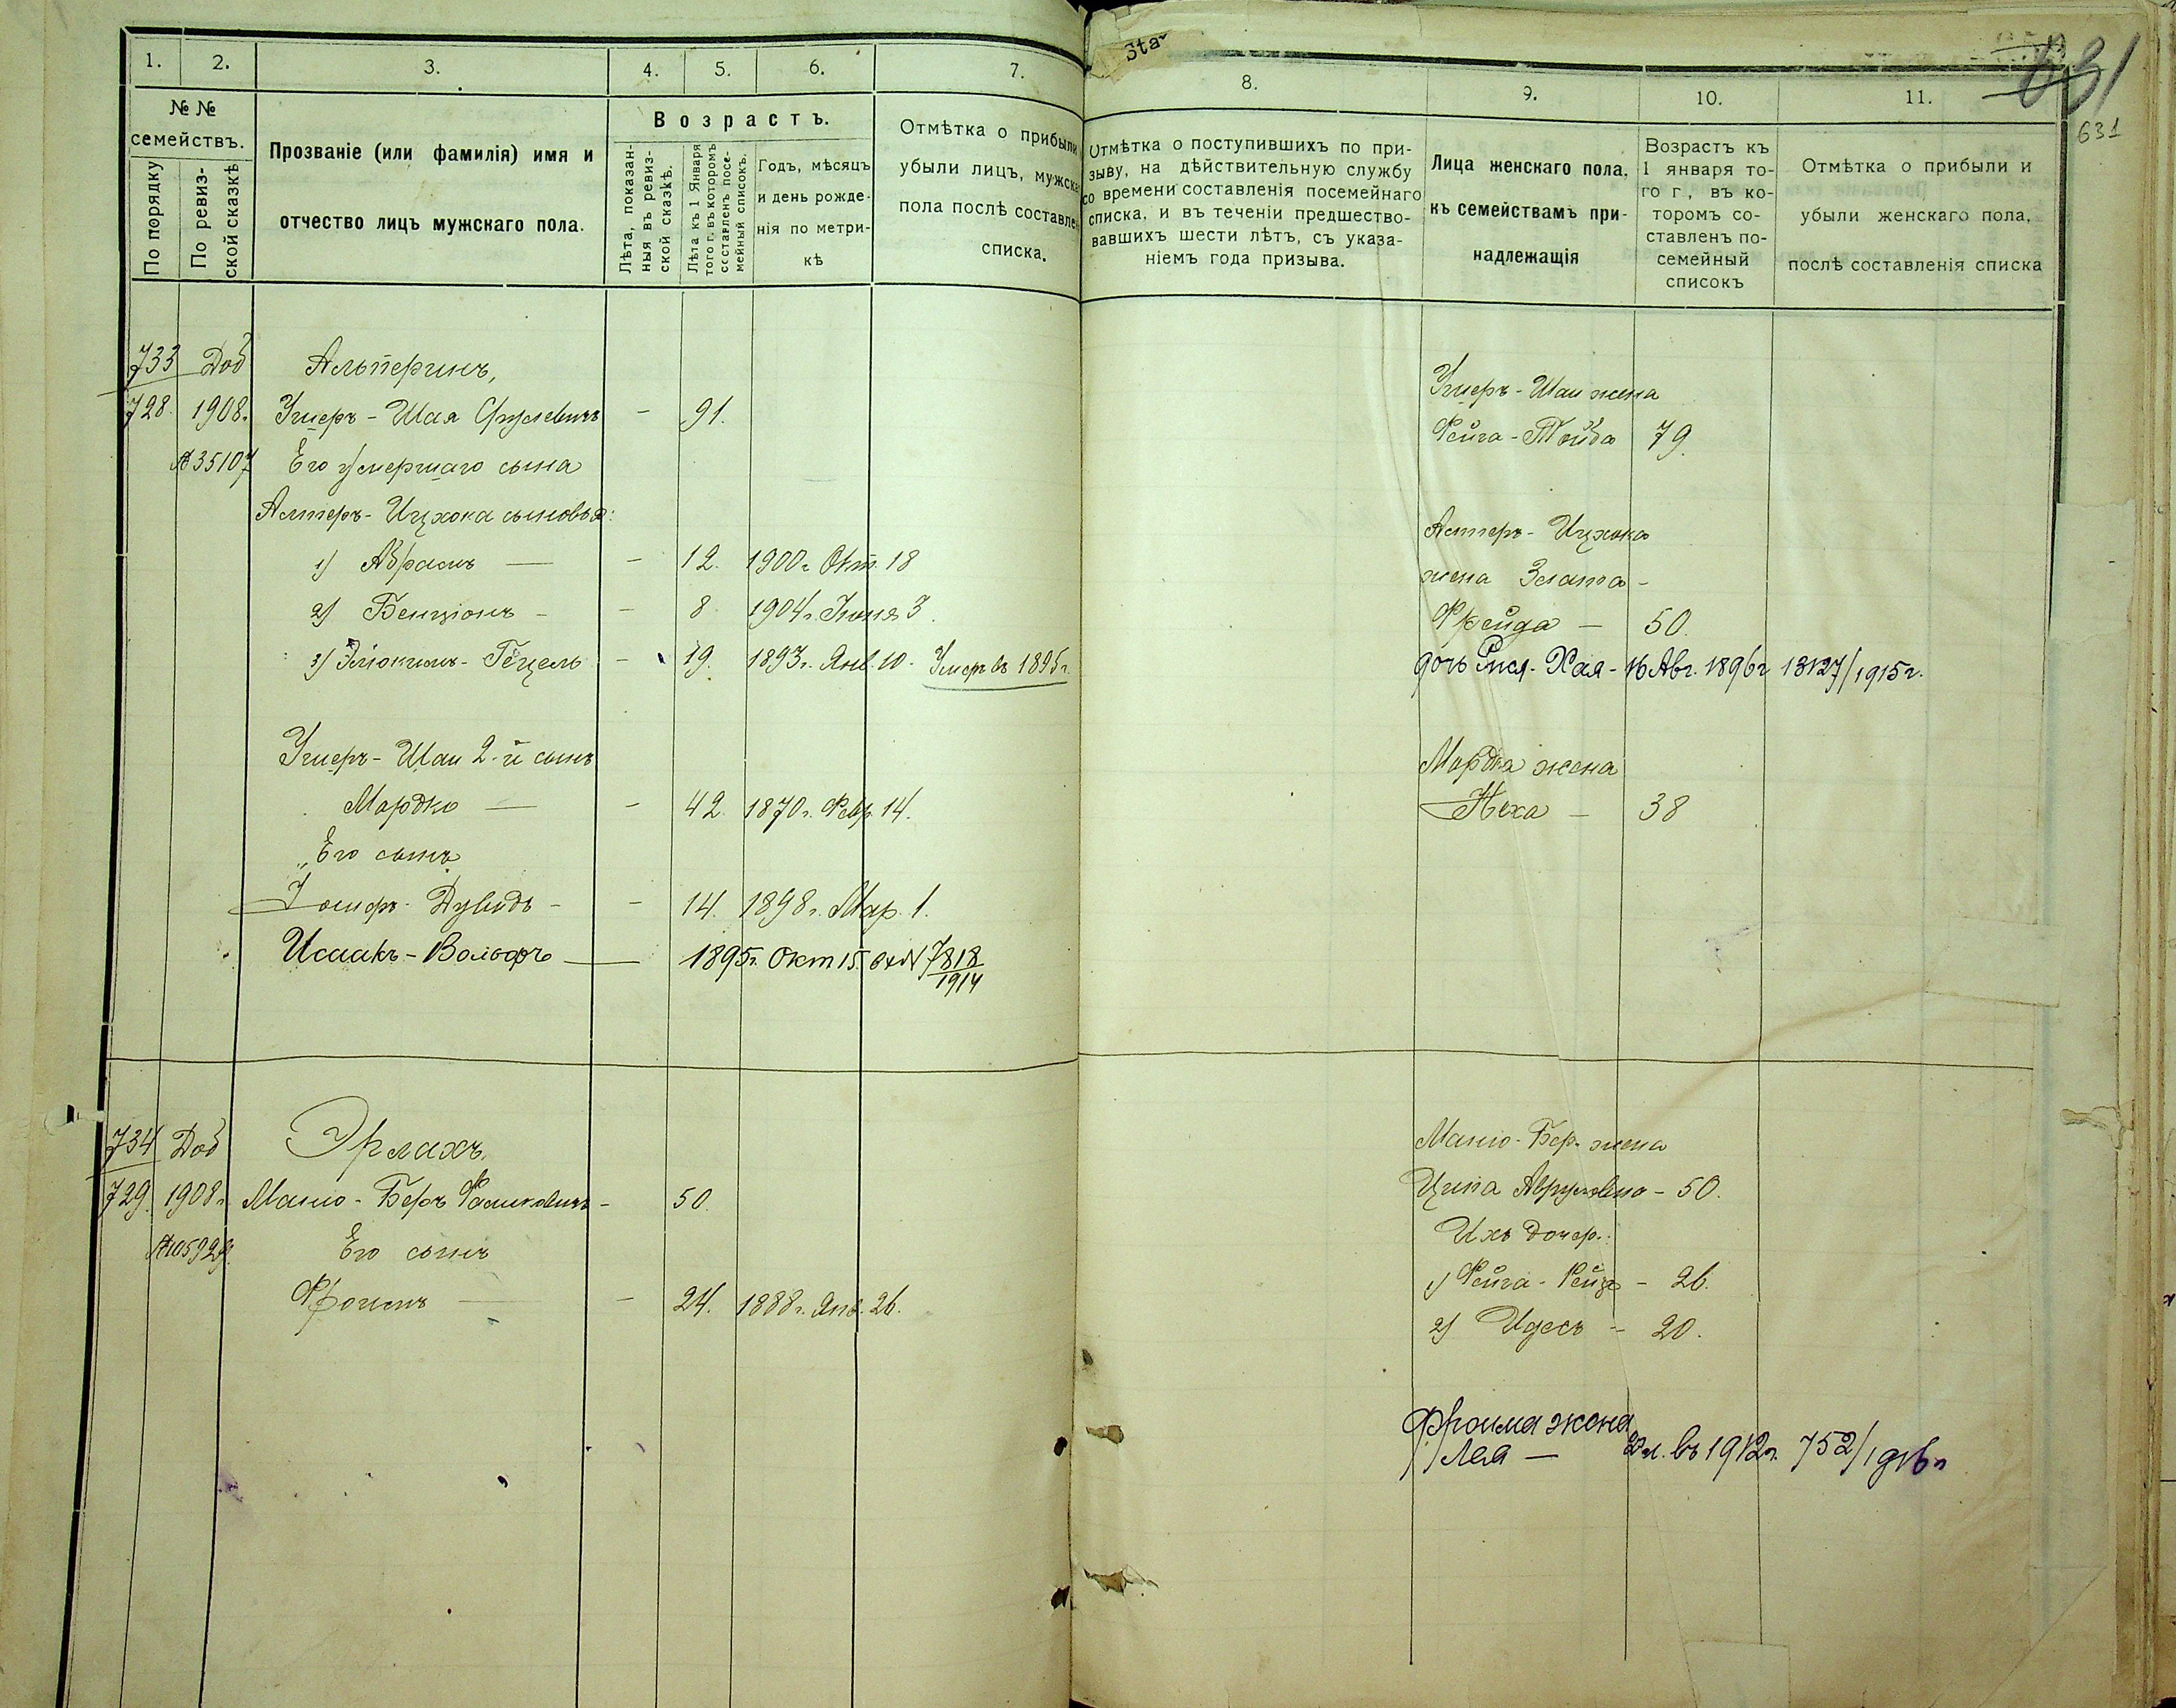 Star
631
631
1. 2. 3. 4. 5. 6. 7.
№ №
семействъ.
По порядку
По ревиз-
ской сказкѣ
Прозваніе (или фамилія) имя и
отчество лицъ мужскаго пола.
Возрастъ.
Лѣта, показан-
ныя въ ревиз-
ской сказкѣ.
Лѣта къ 1 Января
того г. въ которомъ
составленъ посе-
мейный списокъ.
Годъ, мѣсяцъ
и день рожде-
нія по метри-
кѣ
Отмѣтка о прибыли
убыли лицъ, мужска
пола послѣ составлен
списка.
733 Доб Альперинъ,
728. 1908г. Ушеръ-Шая - 91.
№ 35107 Его умершаго сына
Алтеръ-Ицхока сыновья:
1) Абрамъ — - 12. 1900г. Окт. 18
2) Бенціонъ - - 8 1904г. Іюня 3.
3) Эліокимъ-Гецель - 19. 1893г. Янв. 10. Умеръ въ 1895г.
Ушеръ-Шаи 2-й сынъ
Мордко — - 42 1870г. Февр. 14.
Его сынъ
Іосифъ-Дувидъ - - 14. 1898г. Мар. 1.
Исаакъ-Вольфъ — 1895г. Окт. 15. вх № 7818/1914
734 Доб Эрлахъ.
729. 1908г. Манио-Беръ Фроимовичъ - 50.
№ 105929. Его сынъ
Фроимъ — - 24. 1888г. Янв. 26.
8. 9. 10. 11.
Отмѣтка о поступившихъ по при-
зыву, на дѣйствительную службу
со времени составленія посемейнаго
списка, и въ теченіи предшество-
вавшихъ шести лѣтъ, съ указа-
ніемъ года призыва.
Лица женскаго пола,
къ семействамъ при-
надлежащія
Возрастъ къ
1 января то-
го г., въ ко-
торомъ со-
ставленъ по-
семейный
списокъ
Отмѣтка о прибыли и
убыли женскаго пола,
послѣ составленія списка
Ушеръ-Шаи жена
Фейга-Тойба 79.
Алтеръ-Ицхока
жена Злата-
Фрейда — 50.
дочь Рися-Хая - 16 Авг. 1896г 13127/1915г.
Мордка жена
Неха — 38
Манио-Бер. жена
Ципа Аврумовна - 50.
Ихъ дочер.:
1) Фейга-Рейзя - 26.
2) Идесъ - 20.
Фроима жена
Лея — 22 л. въ 1912г. 752/1916г